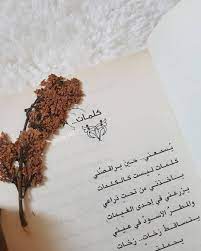 كلمات..
يُسمعني.. حين يراقصني
كلمات ليست كالكلمات
يأخذني من تحت ذراعي
يزرعني في إحدى الغيمات
والمطر الأسود في عيني
يتساقط زخات.. زخات